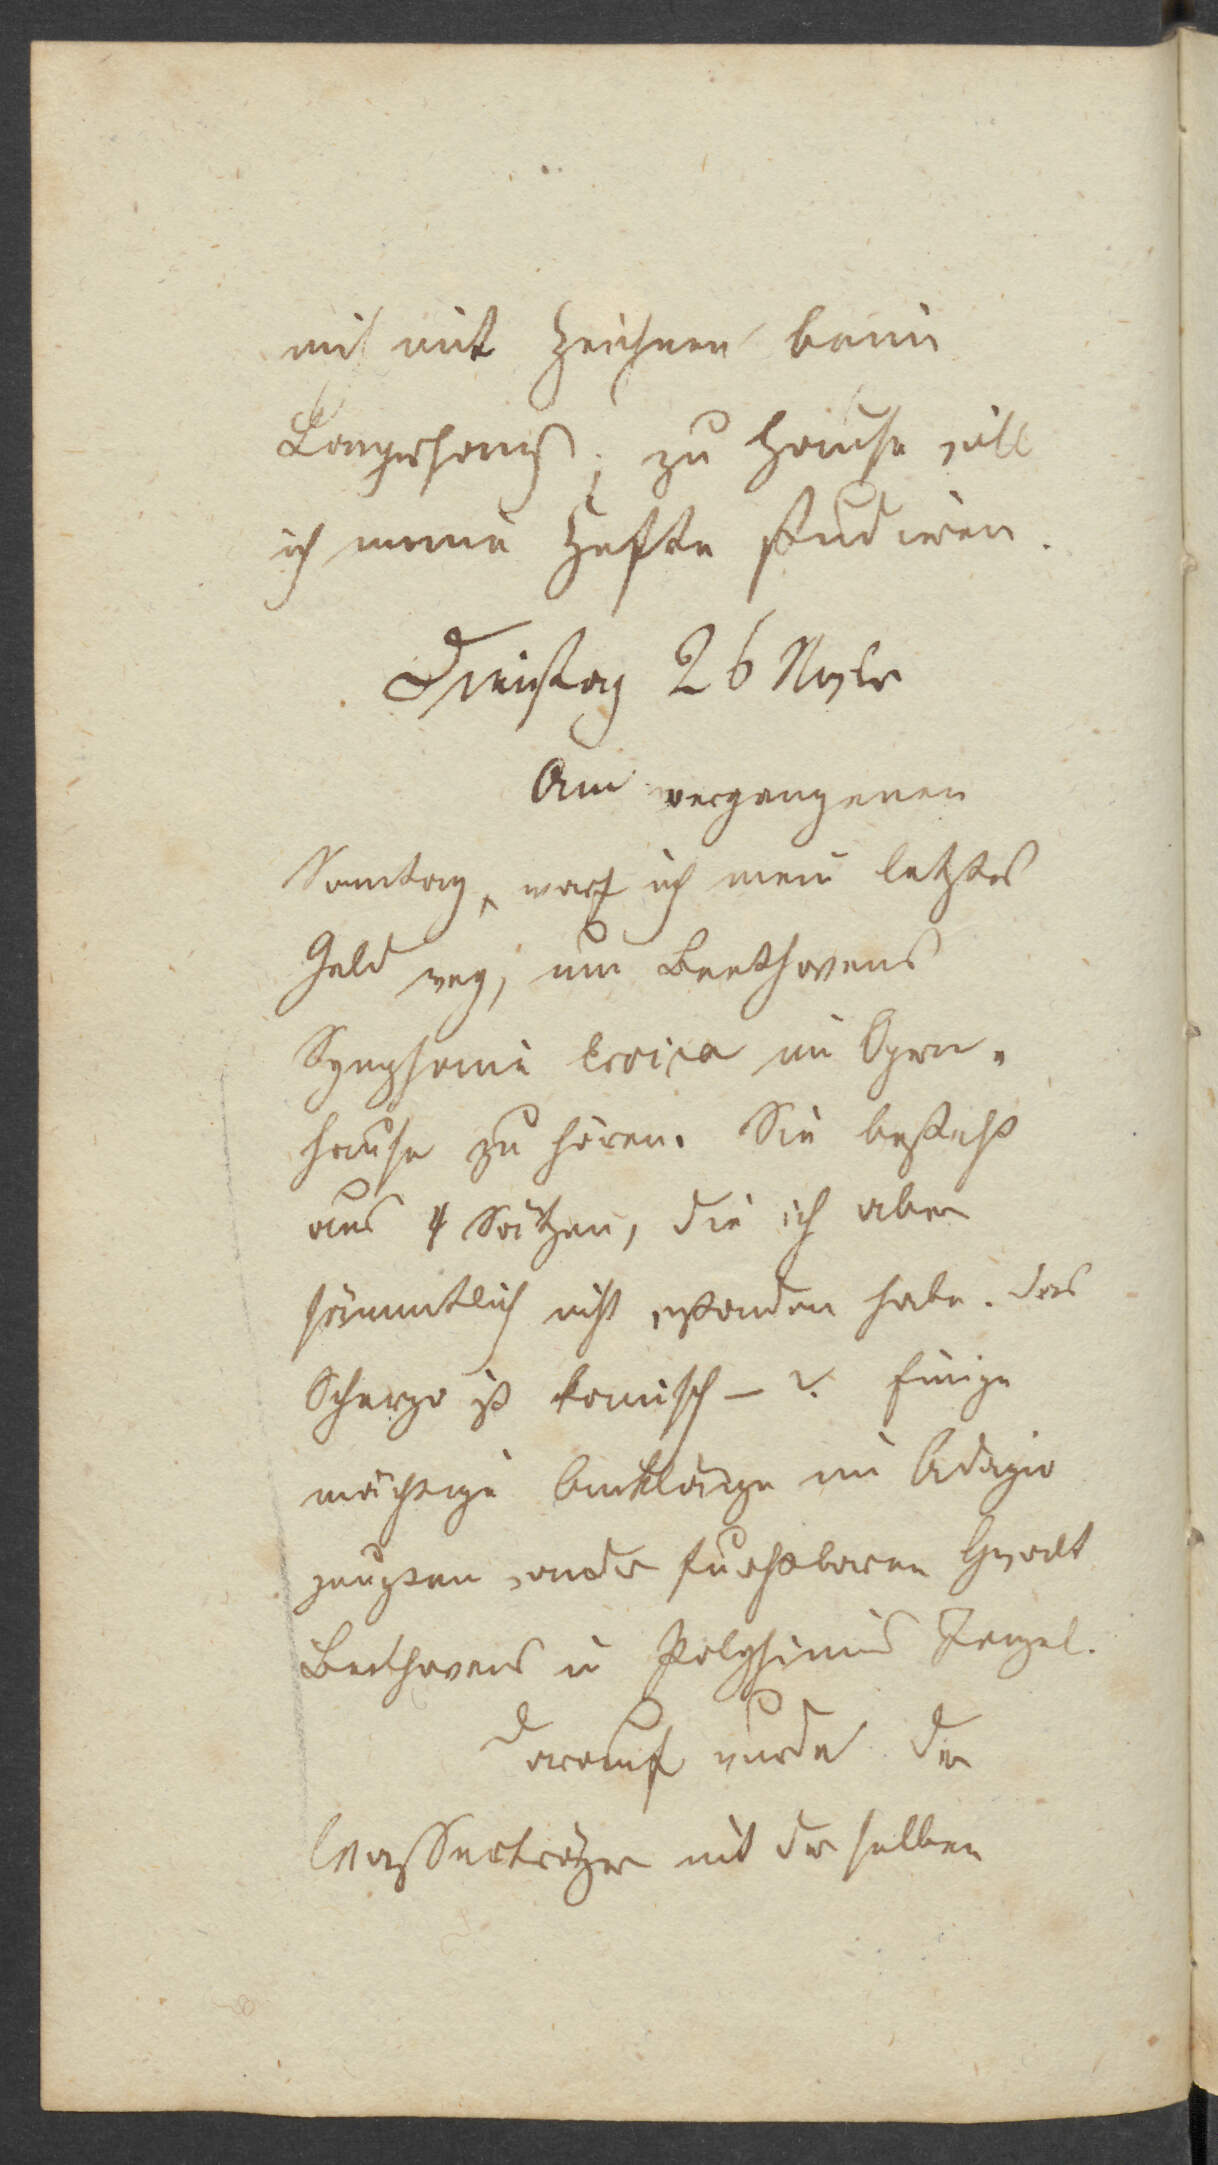 mich mit Zeichnen beim
Langerhans; zu Hause will
ich meine Hefte studiren.
Dienstag 26 Novbr
Am vergangenen
Sonntag, warf ich mein letztes
Geld weg, um Beethovens
Symphonie Eroica im Opern-
hause zu hören. Sie besteht
aus 4 Sätzen, die ich aber
sämmtlich nicht verstanden habe. das
Scherzo ist komisch – ?. Einige
mächtige Anklänge im Adagio
zeugten von der furchtbaren Gewalt
Beethovens u
Darauf wurde der
Wasserträger mit derselben